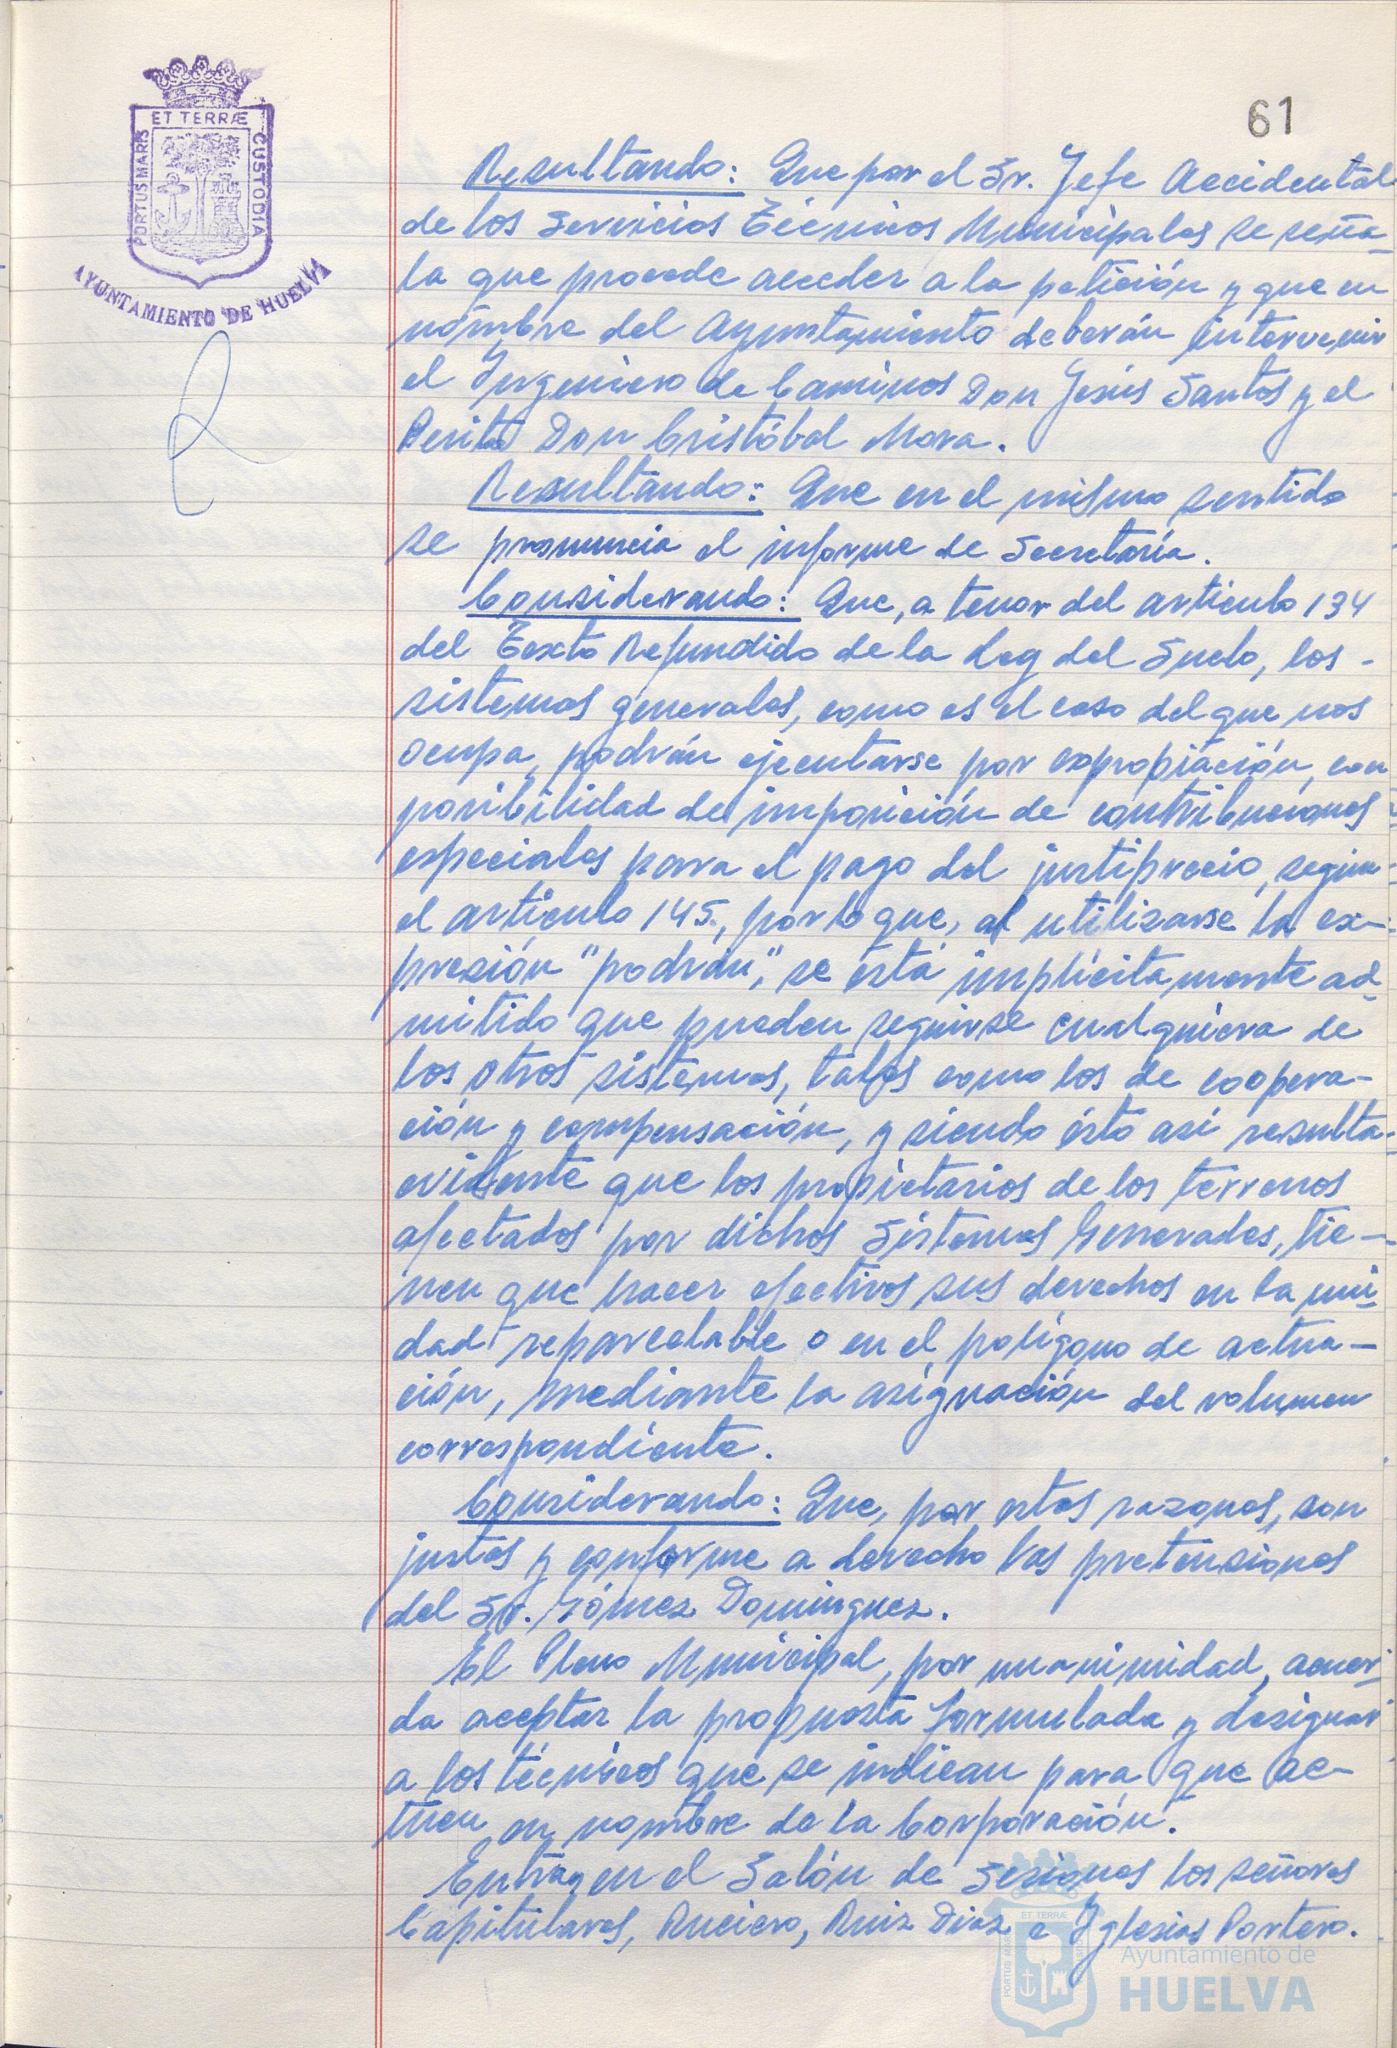 ET TERRÆ
PORTUS MARIS
CUSTODIA
AYUNTAMIENTO DE HUELVA
61
Resultando: Que por el Sr. Jefe Accidental
de los Servicios Técnicos Municipales se seña-
la que procede acceder a la petición y que en
nombre del Ayuntamiento deberán intervenir
el Ingeniero de Caminos Don Jesús Santos y el
Perito Don Cristóbal Mora.
Resultando: Que en el mismo sentido
se pronuncia el informe de Secretaría.
Considerando: Que, a tenor del artículo 134
del Texto Refundido de la Ley del Suelo, los -
sistemas generales, como es el caso del que nos
ocupa, podrán ejecutarse por expropiación, con
posibilidad de imposición de contribuciones
especiales para el pago del justiprecio, según
el artículo 145., por lo que, al utilizarse la ex-
presión "podrán", se está implícitamente ad-
mitido que pueden seguirse cualquiera de
los otros sistemas, tales como los de coopera-
ción y compensación, y siendo ésto así resulta
evidente que los propietarios de los terrenos
afectados por dichos Sistemas Generales, tie-
nen que hacer efectivos sus derechos en la uni-
dad reparcelable o en el polígono de actua-
ción, mediante la asignación del volumen
correspondiente.
Considerando: Que, por estas razones, son
justas y conforme a derecho las pretensiones
del Sr. Gómez Dominguez.
El Pleno Municipal, por unanimidad, acuer-
da aceptar la propuesta formulada y designar
a los técnicos que se indican para que ac-
túen en nombre de la Corporación.
Entran en el Salón de Sesiones los señores
Capitulares, Ruciero, Ruiz Diaz e Iglesias Portero.
Ayuntamiento de
HUELVA